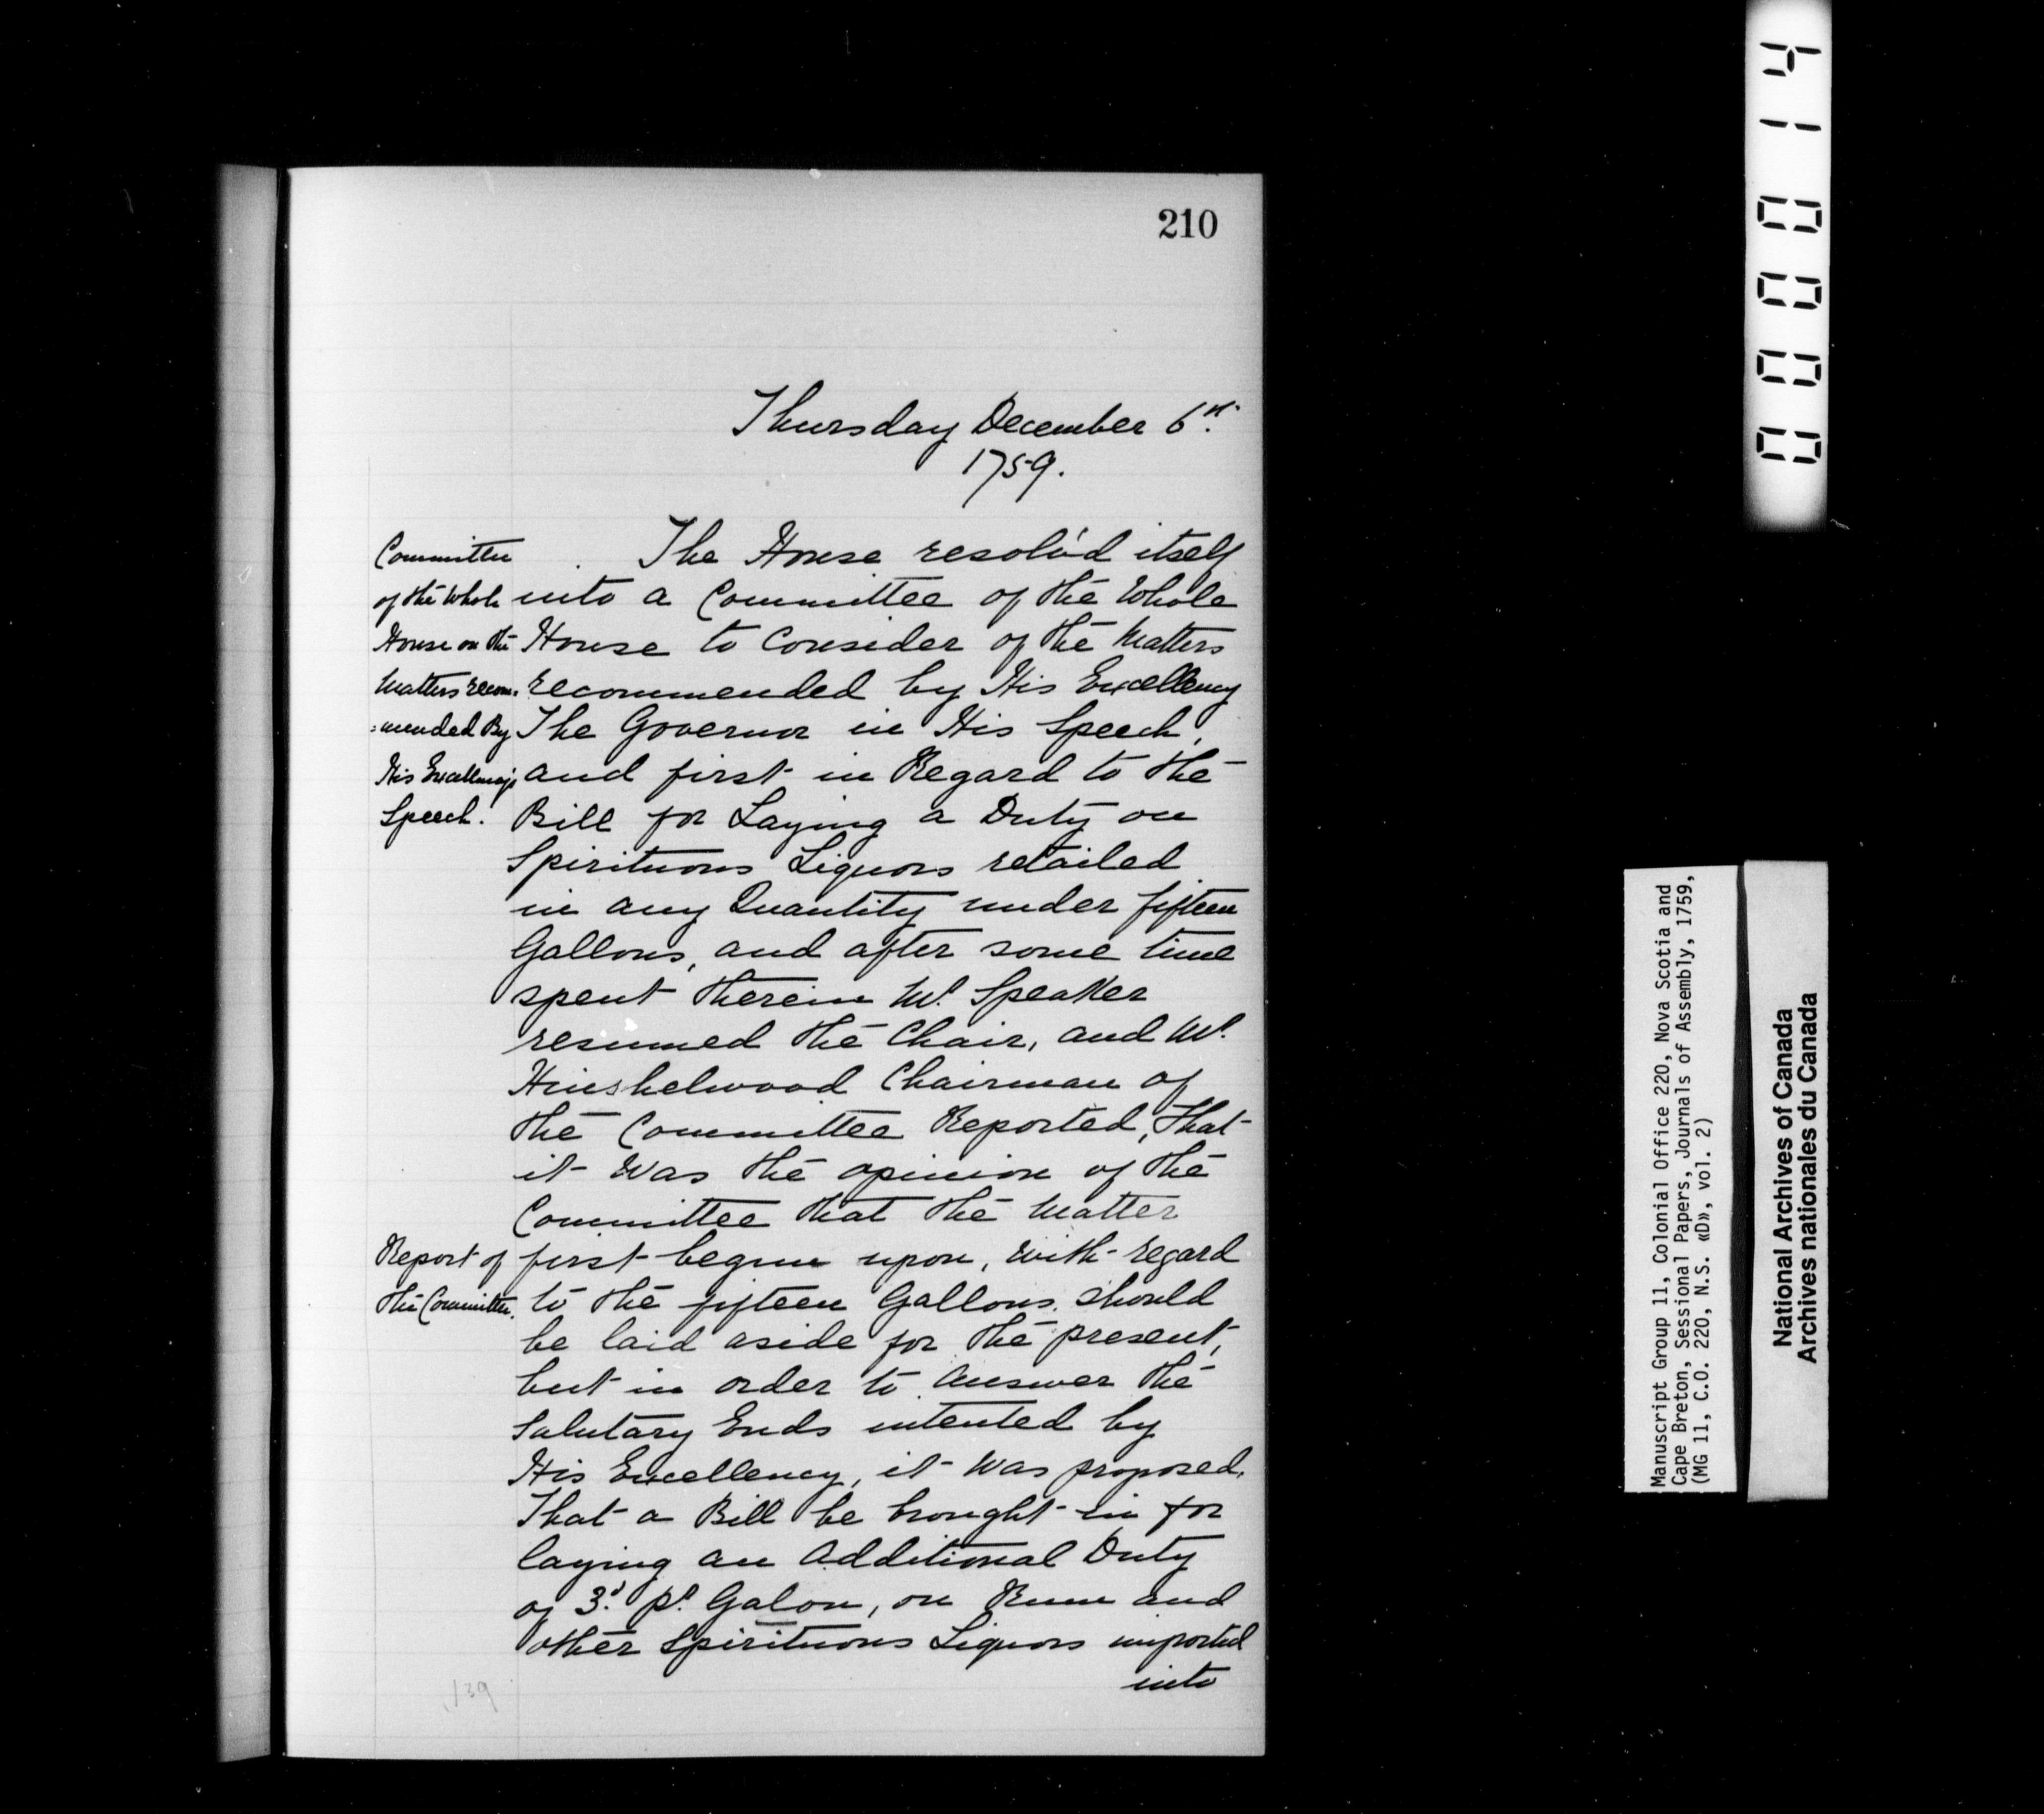 210
Thursday December 6th.
1759.
Committee
of the Whole
House on the
Matters recom-
=mended By
His Excellency's
Speech.
The House resolv'd itself
into a Committee of the Whole
House to Consider of the Matters
recommended by His Excellency
The Governor in His Speech,
and first in Regard to the
Bill for Laying a Duty on
Spirituous Liquors retailed
in any Quantity under fifteen
Gallons, and after some time
spent therein Mr. Speaker
resumed the Chair, and Mr.
Hinshelwood Chairman of
the Committee Reported, That
it was the opinion of the
Committee that the Matter
Report of
the Committee.
first begun upon, with regard
to the fifteen Gallons, should
be laid aside for the present,
but in order to Answer the
Salutary Ends intented by
His Excellency, it was proposed,
That a Bill be brought in for
laying an Additional Duty
of 3d. pr. Galon, on Rum and
other Spirituous Liquors imported
into
139
00004
Manuscript Group 11, Colonial Office 220, Nova Scotia and
Cape Breton, Sessional Papers, Journals of Assembly, 1759,
(MG 11, C.O. 220, N.S. «D», vol. 2)
National Archives of Canada
Archives nationales du Canada